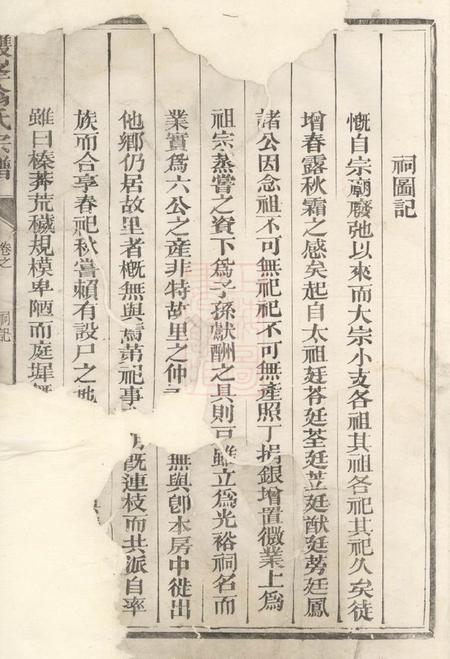 祠圖記
慨自宗廟廢弛以來而大宗小支各祖其祖各祀其祀久矣徒
增春露秋霜之感矣起自太祖廷苓廷荃廷苙廷猷廷蒡廷鳳
諸公因念祖不可無祀祀不可無產照丁捐銀增置微業上爲
祖宗蒸嘗之資下爲子孫獻酬之具則豆雖立爲光裕祠名而
業實爲六公之產非特故里之仲 無與卽本房中徙出
他鄉仍居故里者概無與焉第祀事 旣連枝而共派自率
族而合享春祀秋嘗賴有設尸之地
雖曰榛莽荒穢規模卑陋而庭墀
氏宗譜
卷之
祠記